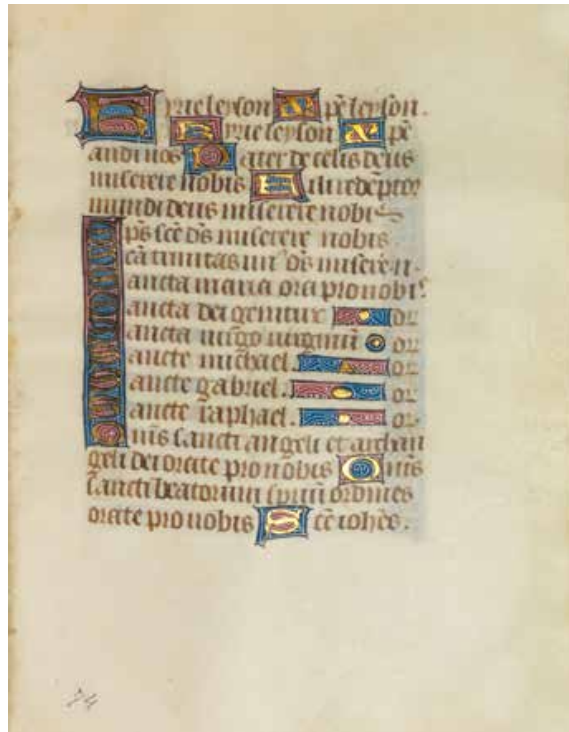 Kyrieleyson Xpē leyson.
Kyrieleyson Xpē
audi nos Pater de celis deus
miserere nobis Fili redēptor
mundi deus miserere nobis
Sps scē ds miserere nobis
Scā trinitas un' ds miserere n.
Sancta maria ora pro nobis
Sancta dei genitrix or
Sancta uirgo uirginū or
Sancte michael. or
Sancte gabriel. or
Sancte raphael. or
Omīs sancti angeli et archan
geli dei orate pro nobis Omīs
sancti beatorum spūū ordines
orate pro nobis Scē iohēs.
74